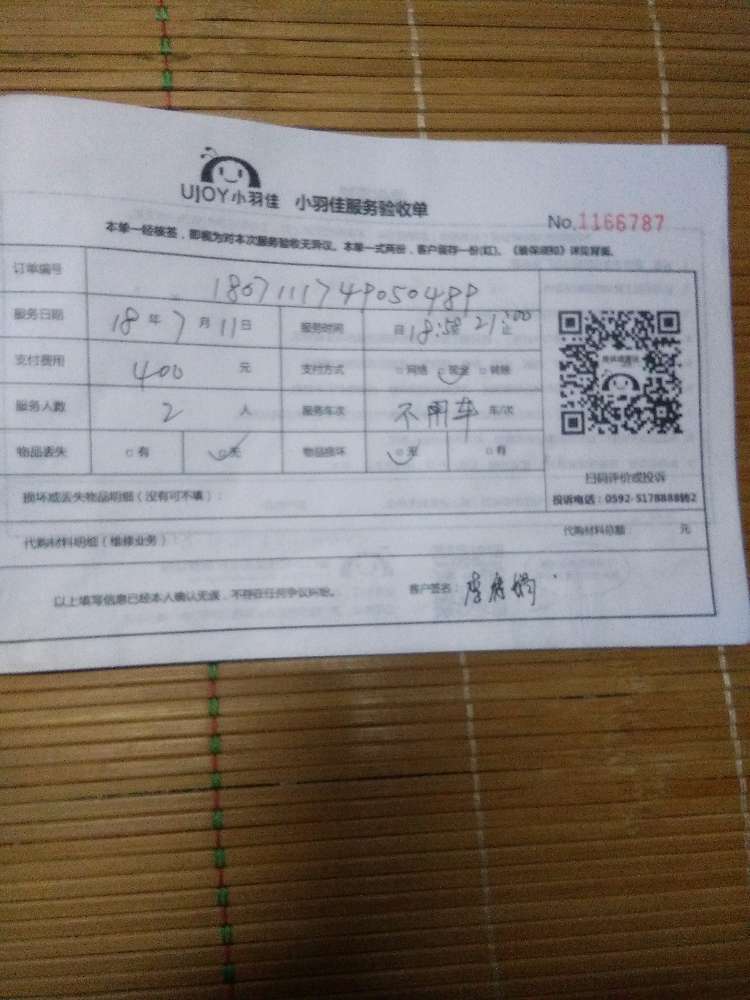 UJOY小羽佳 小羽佳服务验收单
No.1166787
本单一经核签，即视为对本次服务验收无异议。本单一式两份，客户留存一份(红)。《验保须知》详见背面。
订单编号 1807111749050489
服务日期 18年7月11日 服务时间 自18:58至21:00止
支付费用 400 元 支付方式 □网络 □现金 □转账
服务人数 2 人 服务车次 不用车 车/次
物品丢失 □有 □无 物品损坏 □无 □有
扫码评价或投诉
投诉电话：0592-5178888转2
损坏或丢失物品明细（没有可不填）：
代购材料明细（维修业务） 代购材料总额 元
以上填写信息已经本人确认无误，不存在任何争议纠纷。 客户签名：